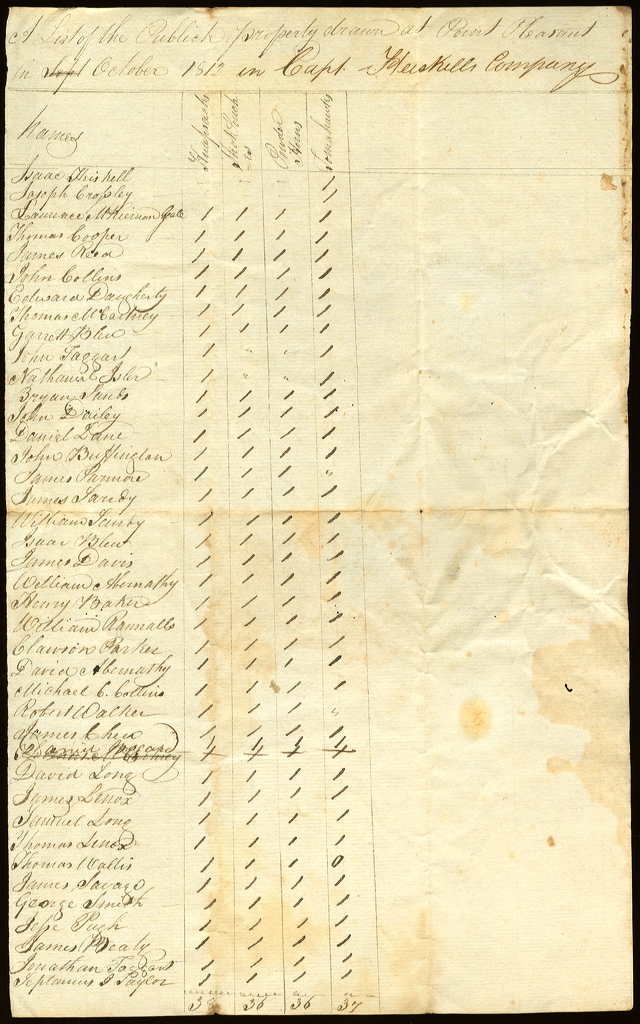 A List of the Publick property drawn at Point Pleasant
in Sept October 1812 in Capt. Heiskells Company
Names Knapsacks Shot Pouches Powder Horns Tomahawks
Isaac Heiskell " " " 1
Joseph Crossley 1
Laurence McKiernan 1 1 1 1
Thomas Cooper 1 1 1 1
James Reed 1 1 1 1
John Collins 1 1 1 1
Edward Daugherty 1 1 1 1
Thomas McCartney 1 1 1 1
Garrett Blew 1 1 1 1
John Taggart 1 " " 1
Nathaniel Isler 1 " " 1
Bryan Sands 1 1 1 1
John Dailey 1 1 1 1
Daniel Lane 1 1 1 1
John Buffington 1 1 1 1
James Parmore 1 1 1 "
James Tandy 1 1 1 1
William Tandy 1 1 1 1
Isaac Blew 1 1 1 1
James Davis 1 1 1 1
William Abernathy 1 1 1 1
Henry Baker 1 1 1 1
William Rannalls 1 1 1 1
Clawson Parker 1 1 1 1
David Abernathy 1 1 1 1
Michael C. Collins 1 1 1 1
Robert Walker 1 1 1 "
James Chew 1 1 1 1
1 1 1 1
David Long 1 1 1 1
James Lenox 1 1 1 1
Samuel Long 1 1 1 1
Thomas Lenox 1 1 1 1
Thomas Wallis 1 1 1 0
James Savage 1 1 1 1
George Smith 1 1 1 1
Jesse Pugh 1 1 1 1
James Mealy 1 1 1 1
Jonathan Taggart 1 1 1 1
Septamus J Taylor 1 1 1 1
38 36 36 37